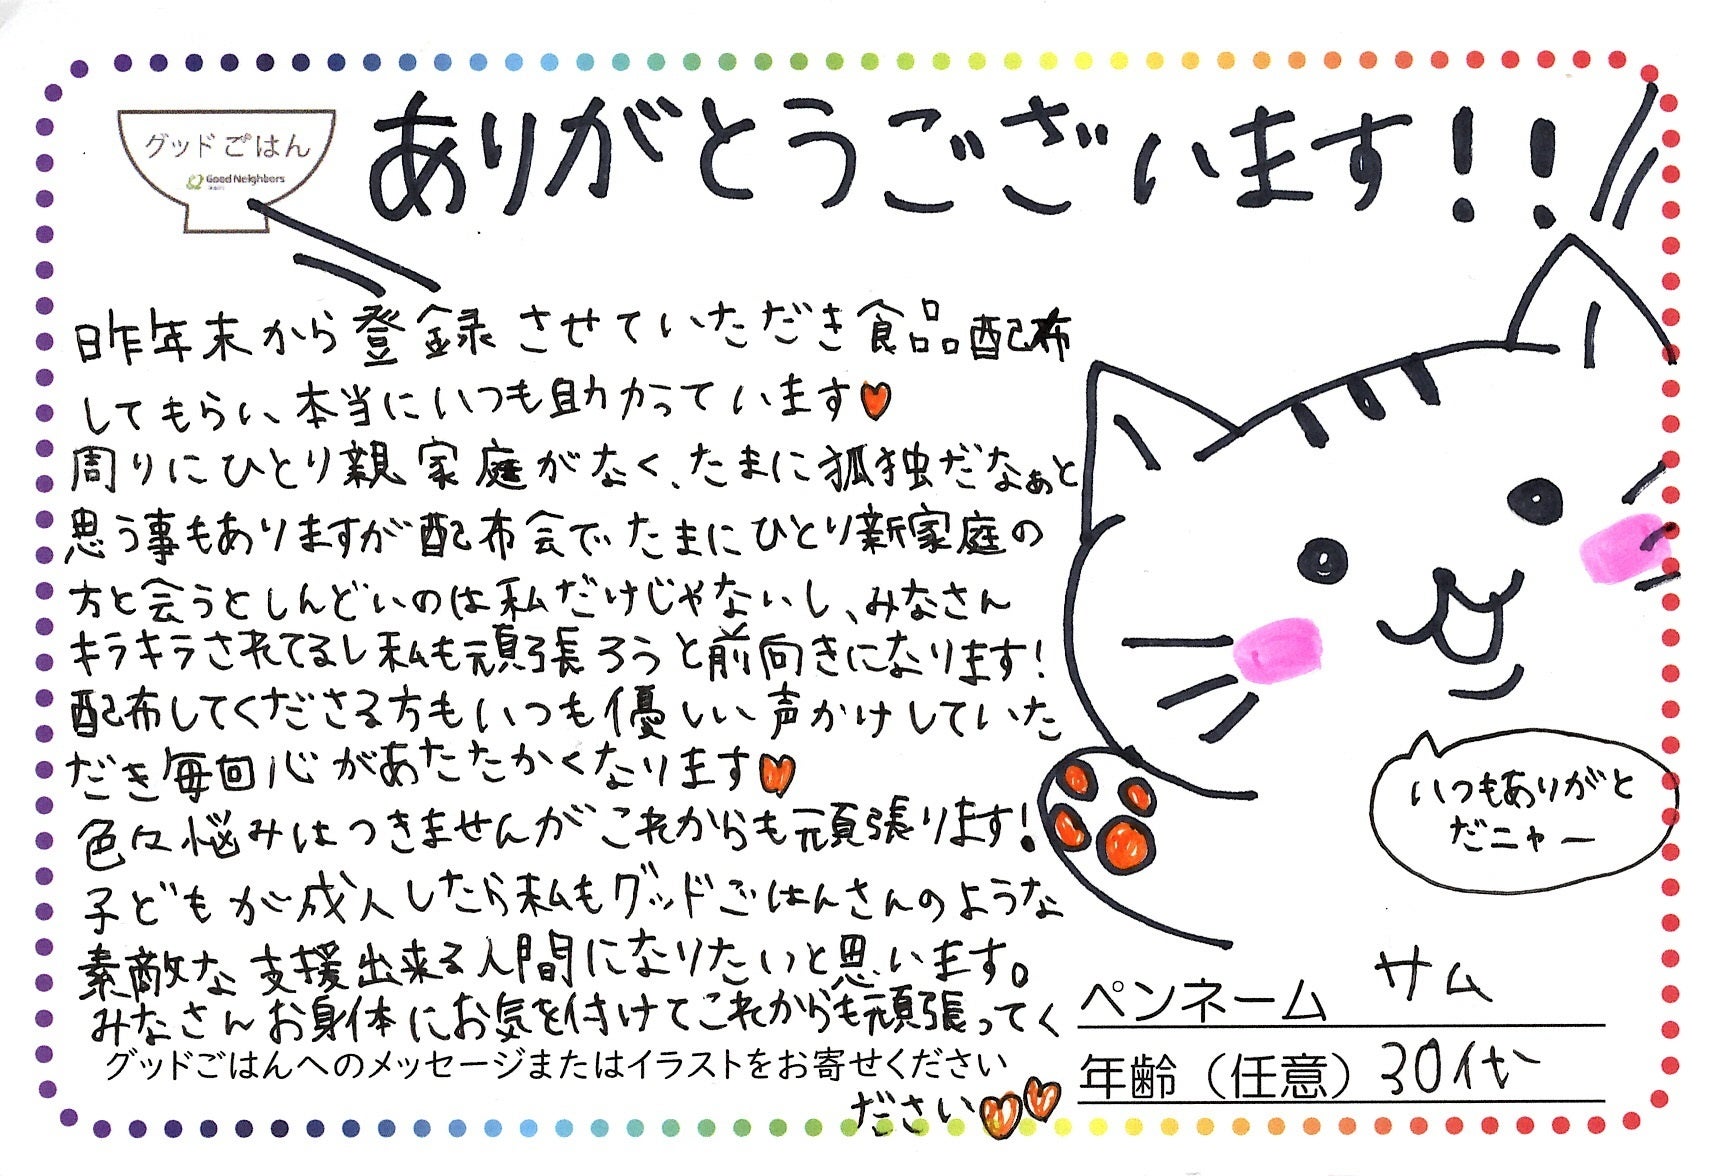 グッドごはん
Good Neighbors
ありがとうございます!!
昨年末から登録させていただき食品配布
してもらい、本当にいつも助かっています♥
周りにひとり親家庭がなく、たまに孤独だなぁと
思う事もありますが配布会で、たまにひとり新家庭の
方と会うとしんどいのは私だけじゃないし、みなさん
キラキラされてるし私も頑張ろうと前向きになります!
配布してくださる方もいつも優しい声かけしていた
だき毎回心があたたかくなります♥
色々悩みはつきませんがこれからも頑張ります!
子どもが成人したら私もグッドごはんさんのような
素敵な支援出来る人間になりたいと思います。
みなさんお身体にお気を付けてこれからも頑張ってく
ださい♥♥
グッドごはんへのメッセージまたはイラストをお寄せください
いつもありがと
だニャー
ペンネーム サム
年齢（任意）30代